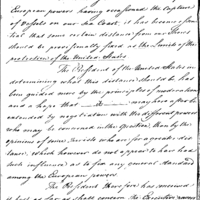 European powers having confined the Capture
of Vessels on our Coast, it has become
that some certain distance from our Shores
should be provisionally fixed as the Limits of the
protection of the United States
The President of the United States in
determining what this distance should be has
been guided more by the principles of moderation
and a hope that it may hereafter be
extended by negotiation with the different powers
who may be concerned in the question, than by the
opinions of some Jurists who are for a greater dis-
tance, which however do not appear to have had
such influence as to fix any general standard
among the European powers
The President therefore has reserved
as far as shall concern the Executive